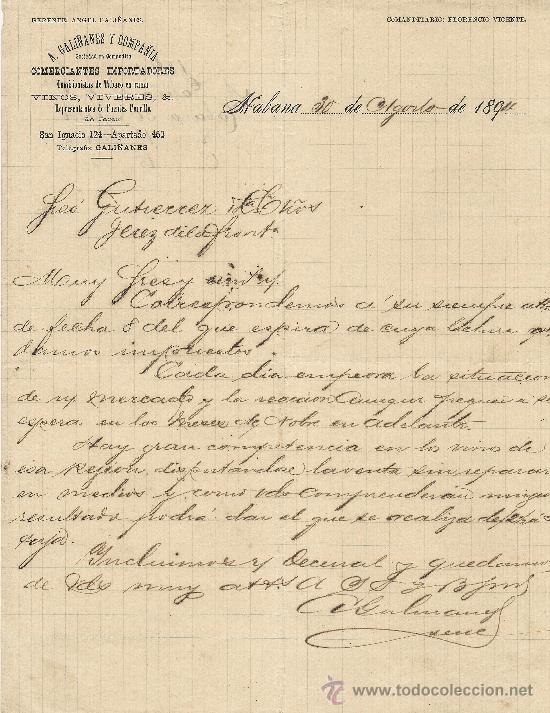 GERENTE: ANGEL GALIÑANES.
COMANDITARIO: FLORENCIO VICENTE.
A. GALIÑANES Y COMPAÑIA
Sociedad en Comandita
COMERCIANTES IMPORTADORES
Comisionistas de Tabaco en rama
VINOS, VIVERES, &.
Representantes de Buenas Familia
San Ignacio 124—Apartado 461
Telégrafo: GALIÑANES
Habana 30 de Agosto de 1894
Gutierrez Hños
Jerez de la Front
Muy Sres y
Correspondemos á su siempre att
de fecha 8 del que espira de cuya
damos impuestos.
Cada dia empeora la situacion
de n/ mercado y la reaccion aunque pequeña se
espera en los meses de Nbre en adelante
Hay gran competencia en los vinos de
esa Region, disputándose la venta sin reparar
en medios y como Vds comprenderán ningun
resultado podrá dar el que se realiza
Incluimos n/ Decenal y quedamos
de Vds muy atts
Galiñanes
todocoleccion www.todocoleccion.net